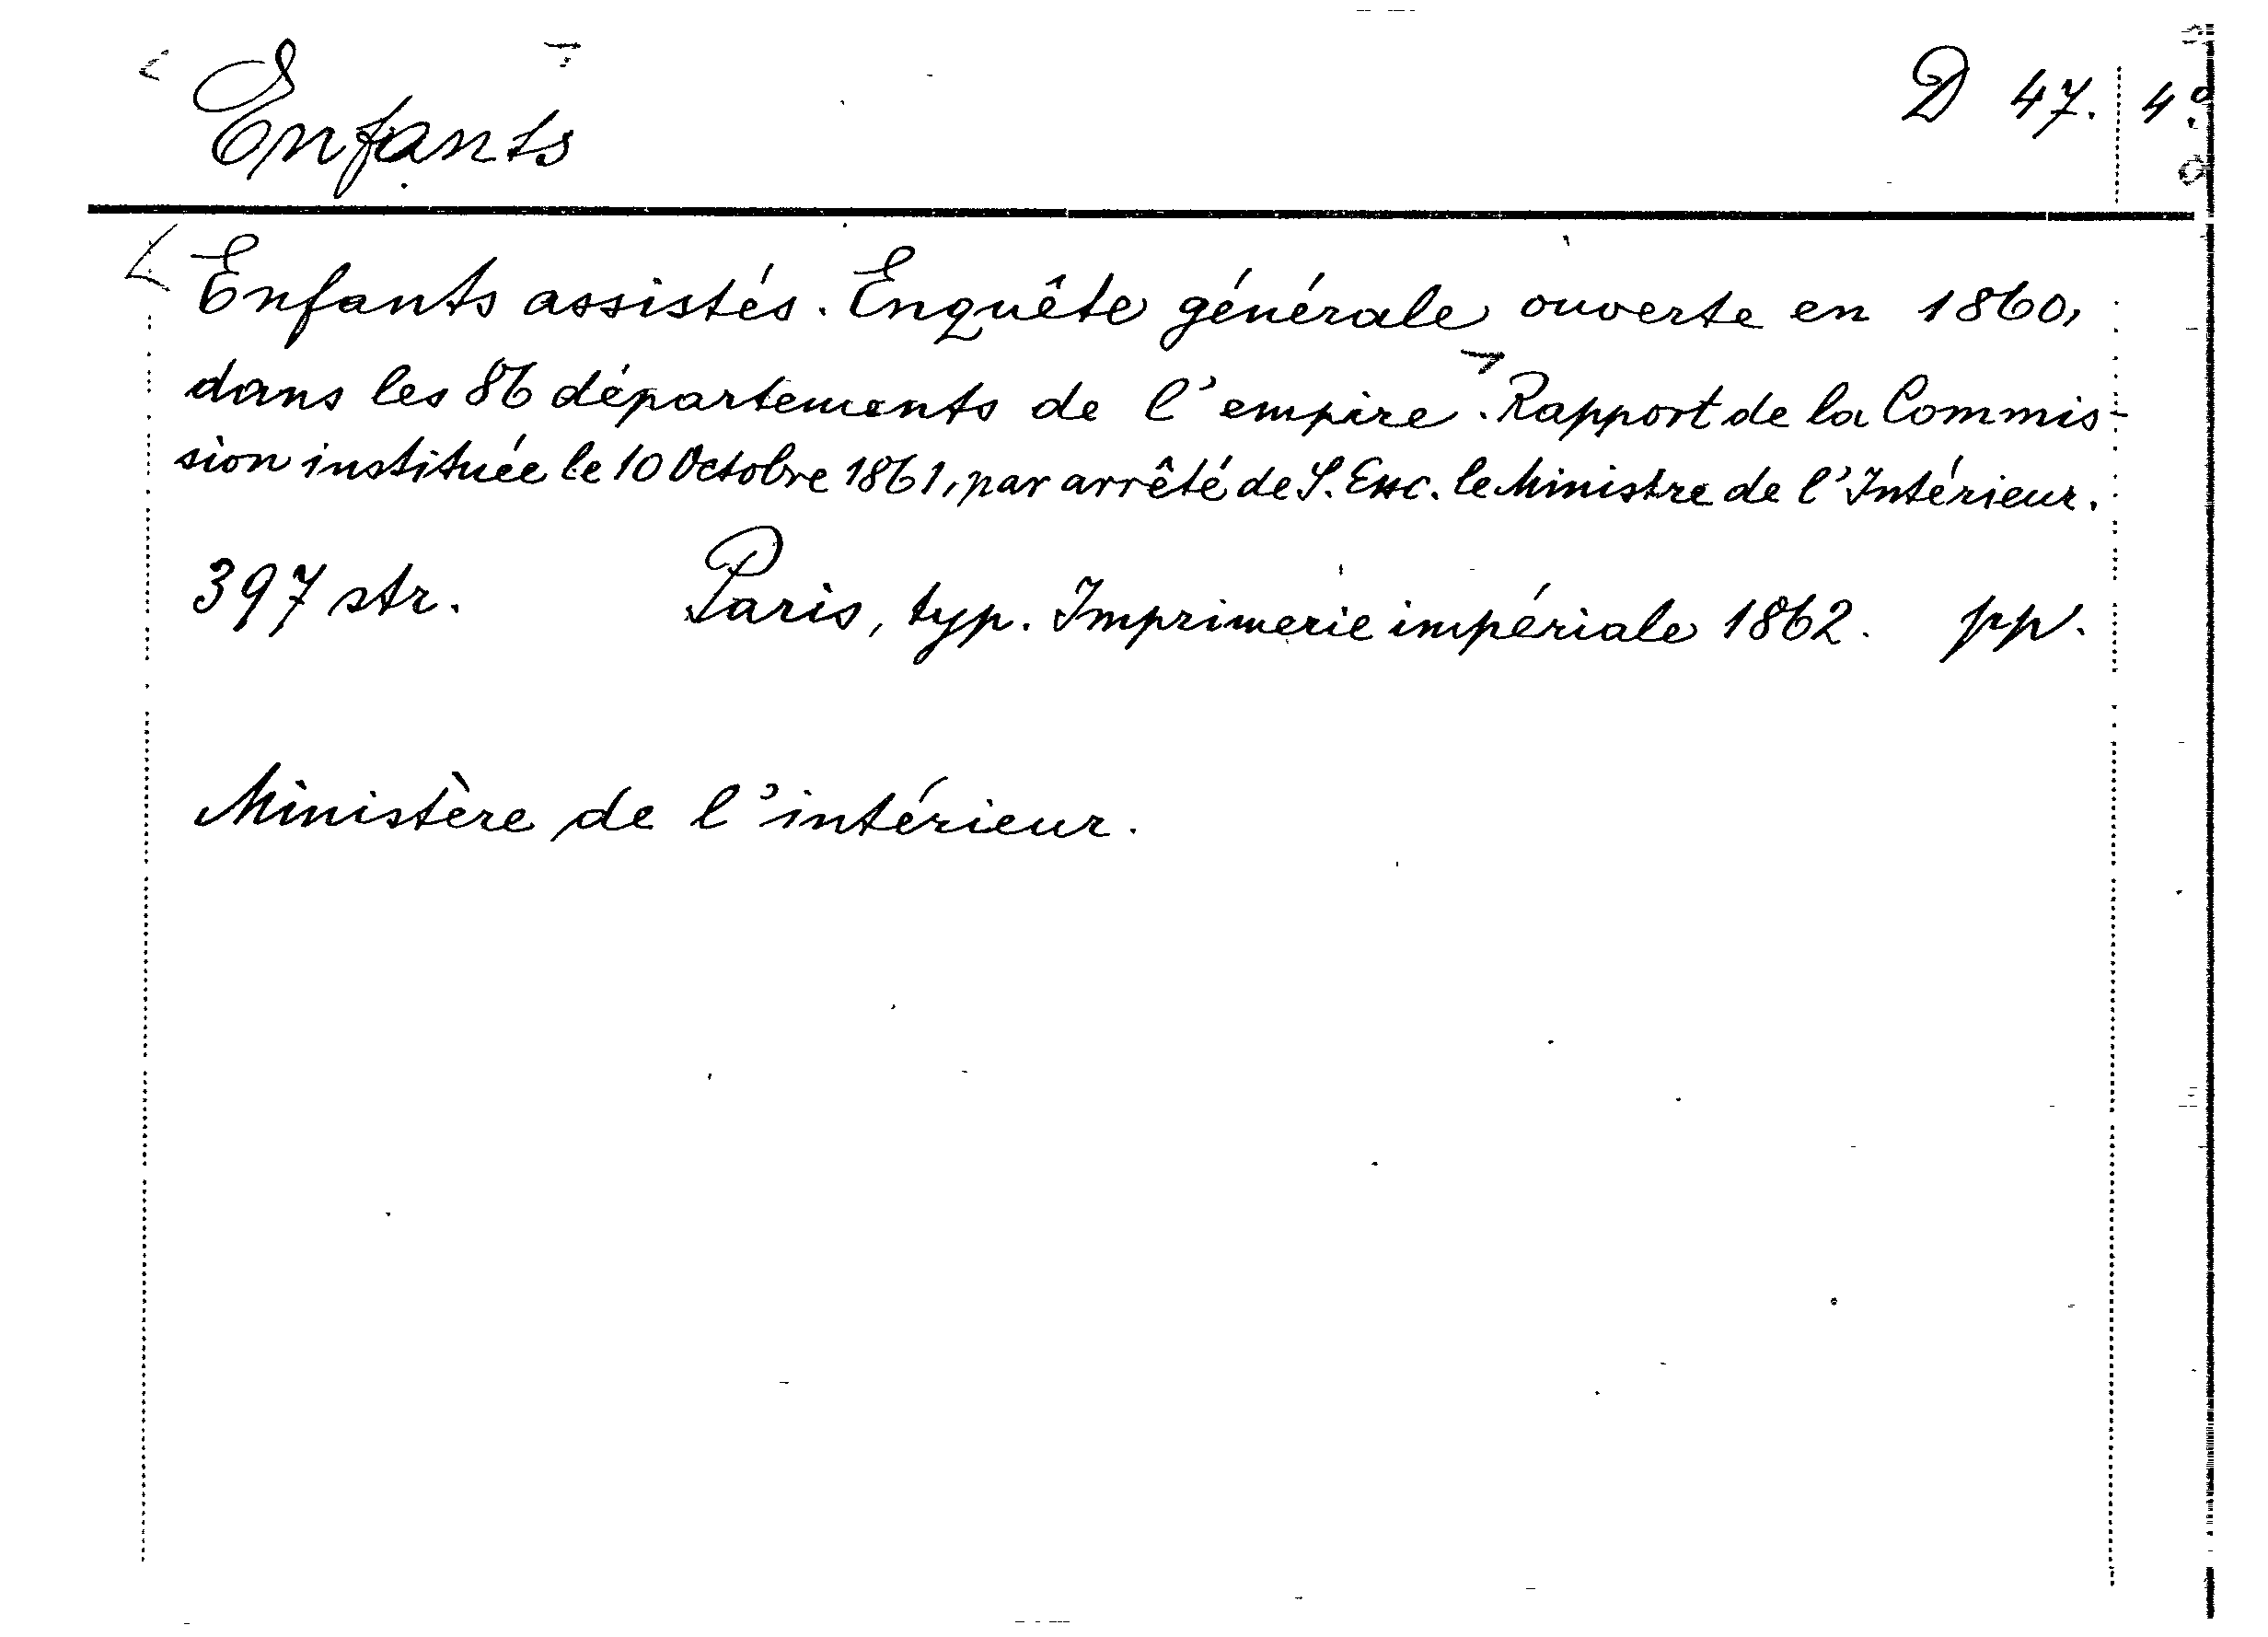 Enfants
D 47. 4º.
Enfants assistés. Enquête générale ouverte en 1860,
dans les 86 départements de l'empire. Rapport de la Commis-
sion instituée le 10 Octobre 1861, par arrêté de S. Exc. le Ministre de l'Intérieur.
397 str. Paris, typ. Imprimerie impériale 1862. pp.
Ministère de l'intérieur.